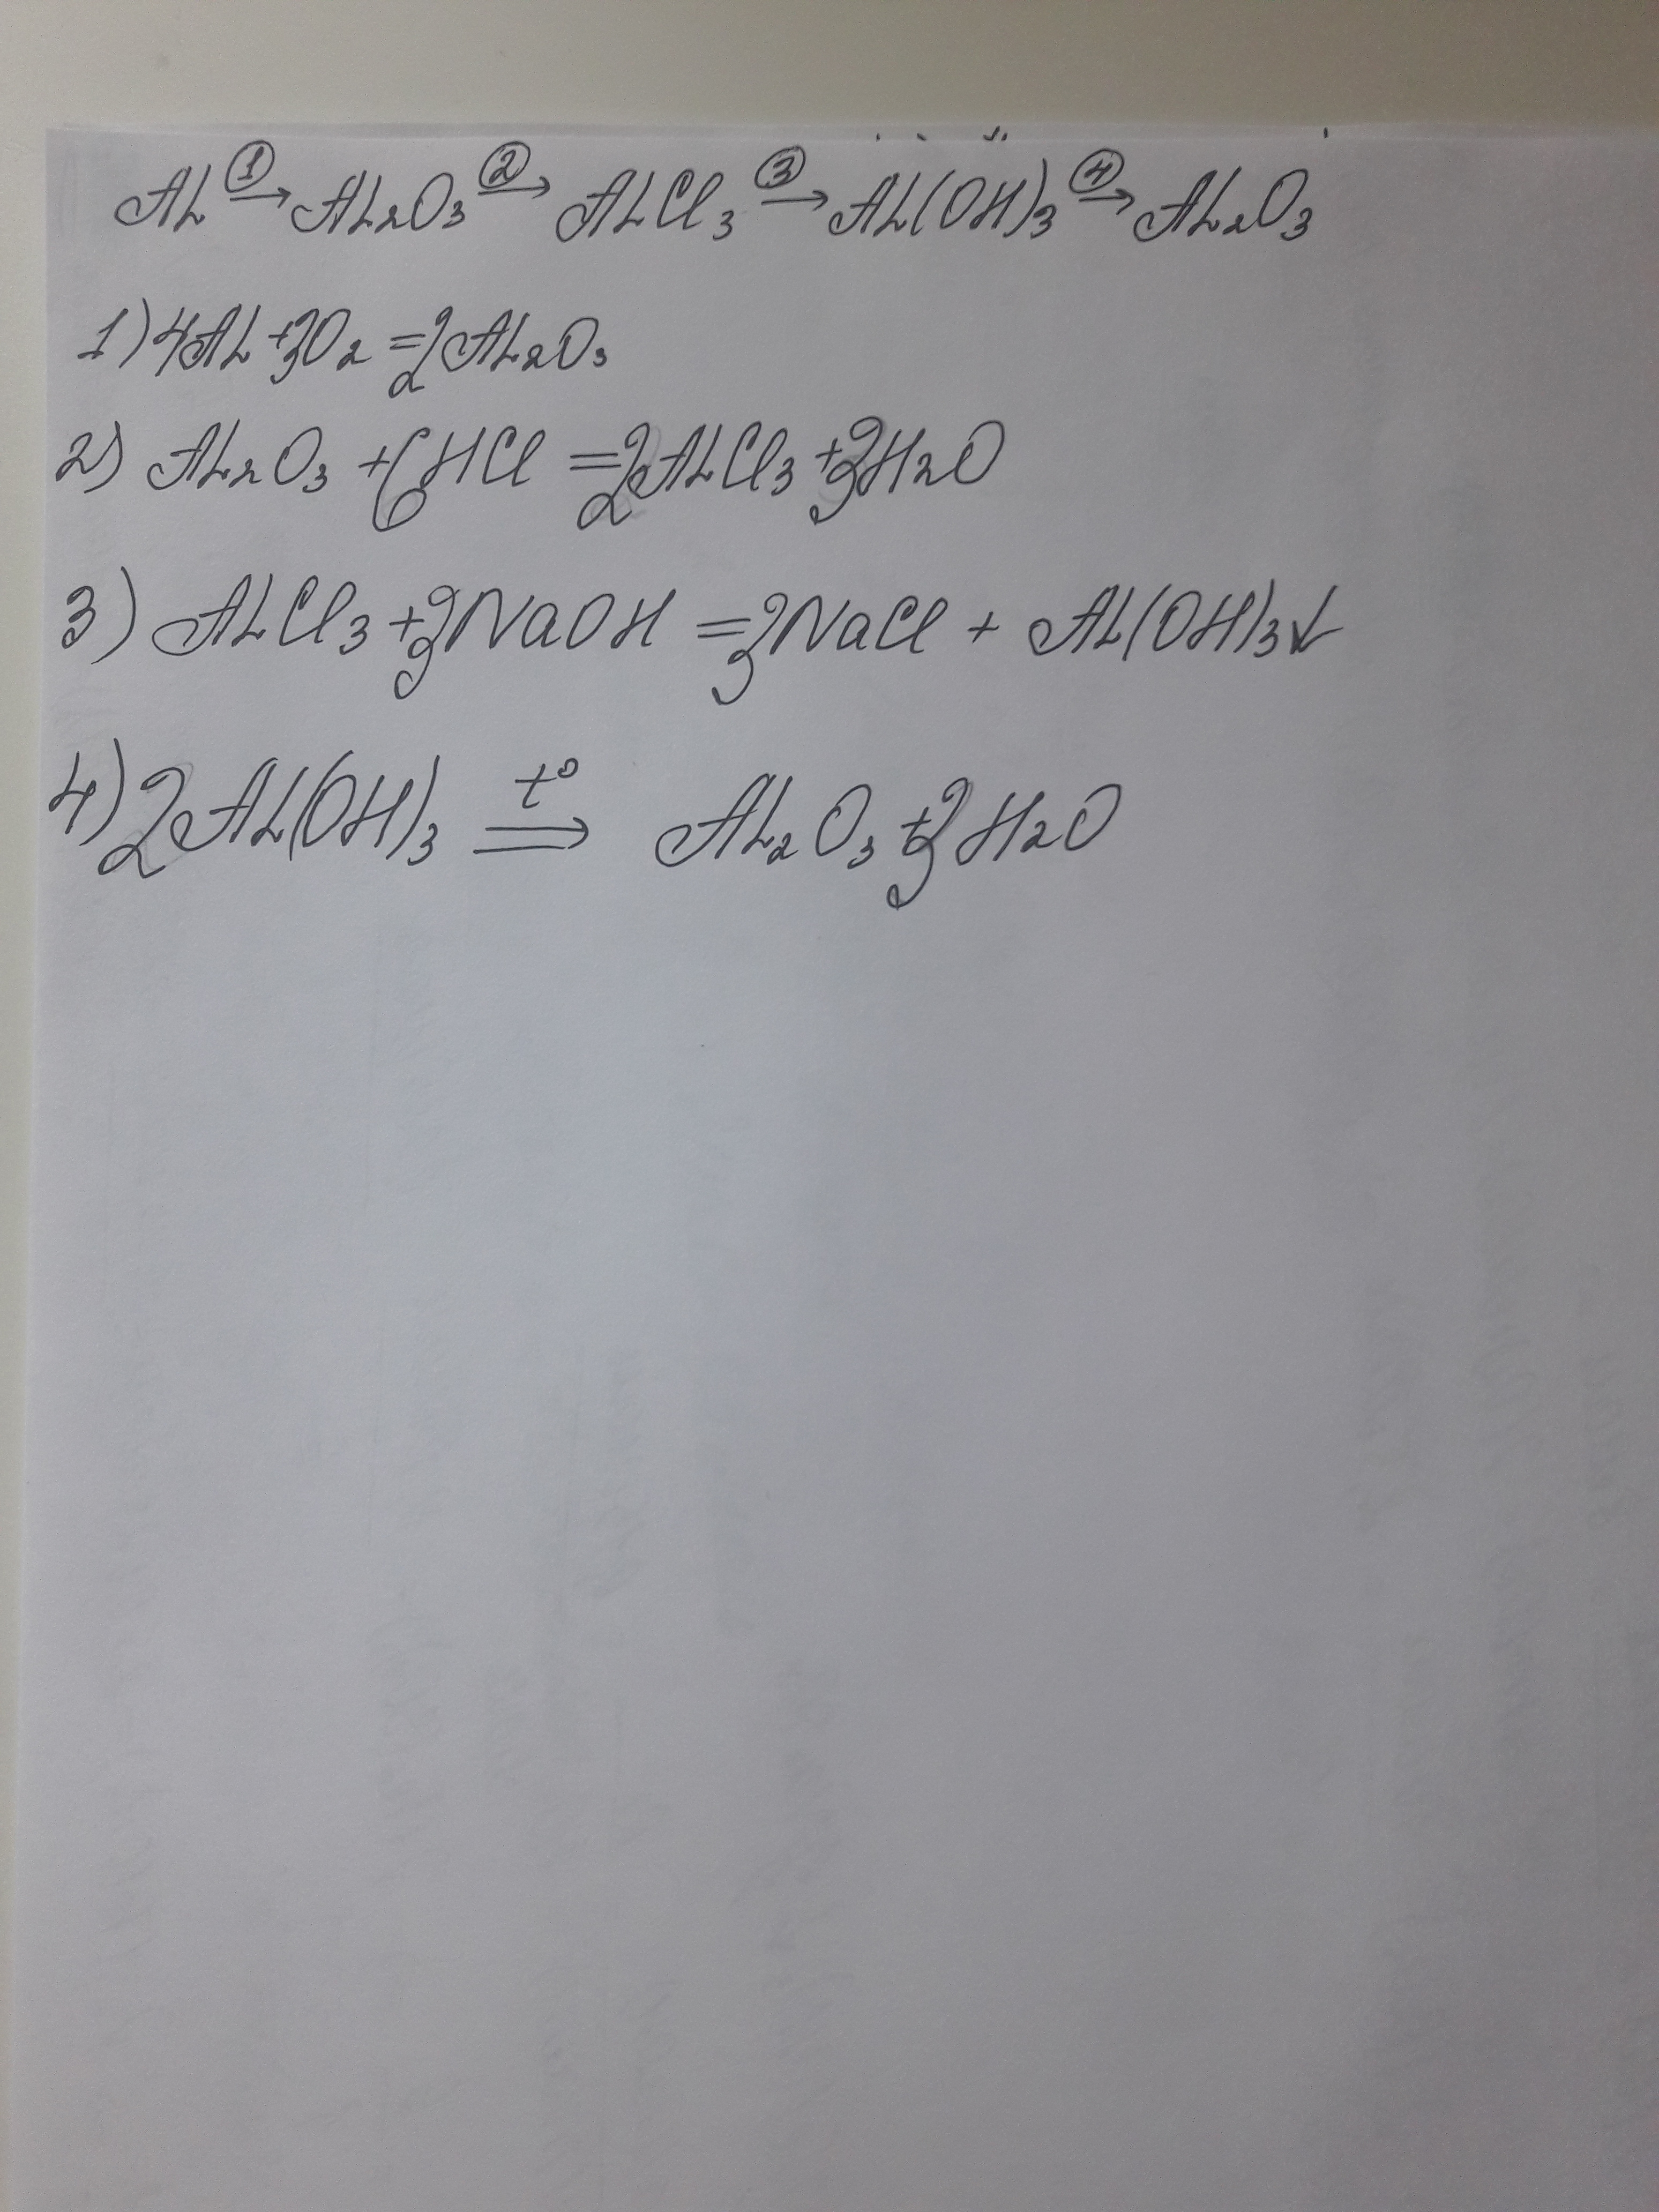 Al ①→ Al₂O₃ ②→ AlCl₃ ③→ Al(OH)₃ ④→ Al₂O₃
1) 4Al + 3O₂ = 2Al₂O₃
2) Al₂O₃ + 6HCl = 2AlCl₃ + 3H₂O
3) AlCl₃ + 3NaOH = 3NaCl + Al(OH)₃↓
4) 2Al(OH)₃ t°⇒ Al₂O₃ + 3H₂O